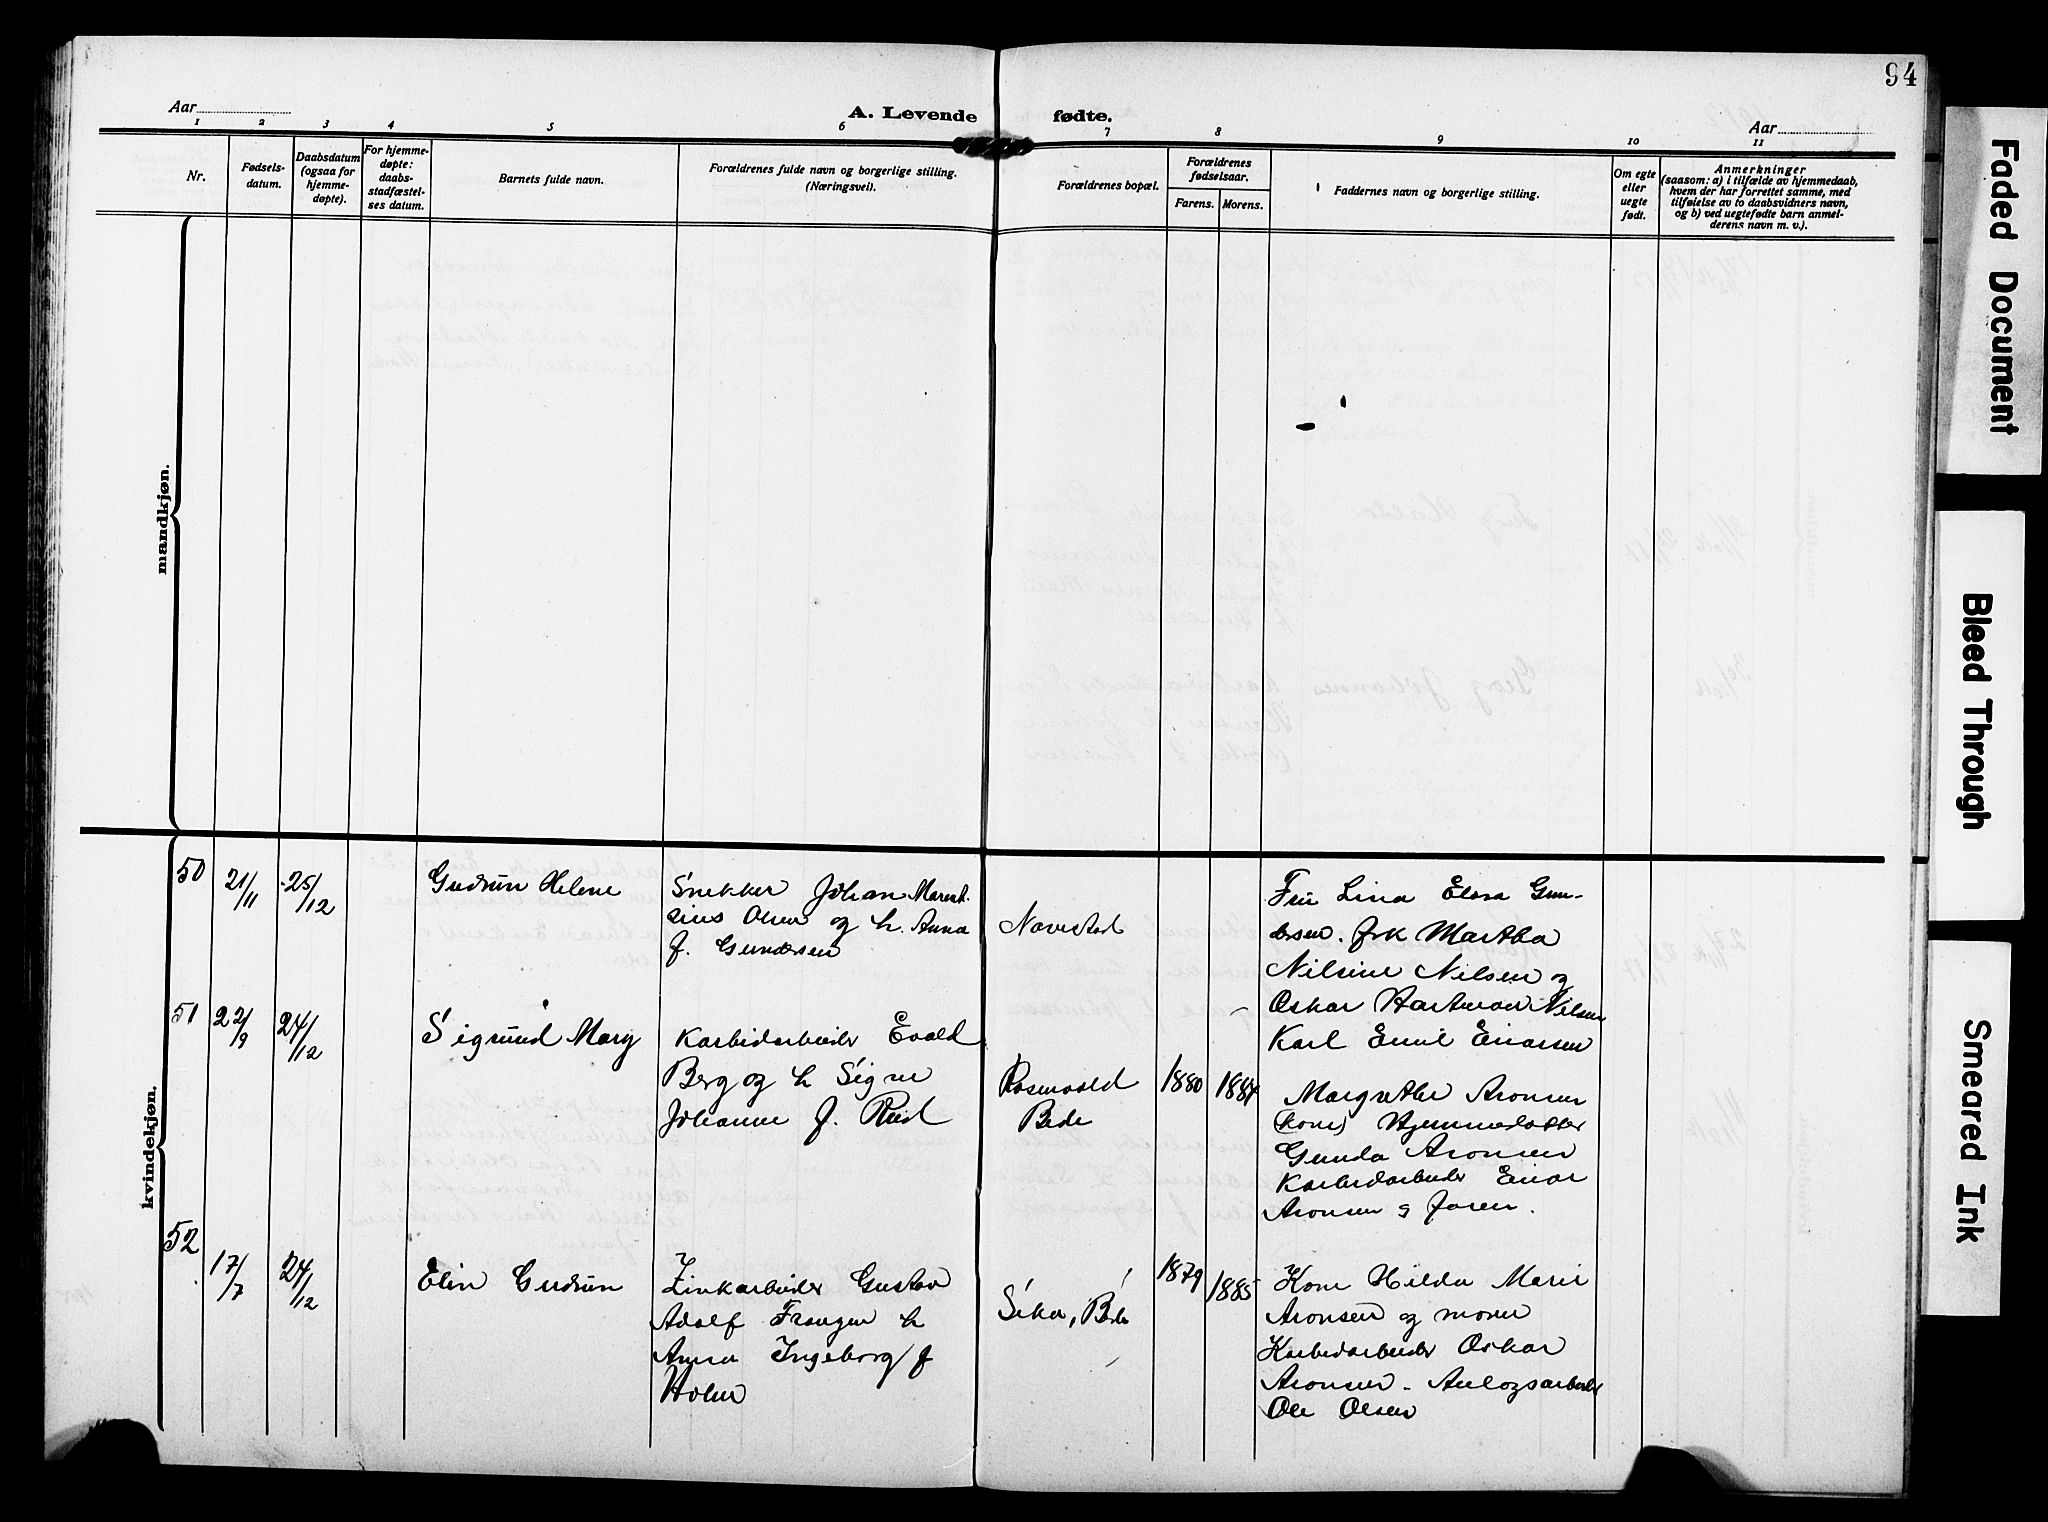 94
Aar
A. Levende fødte.
Aar
1 2 3 4 5 6 7 8 9 10 11
Nr.
Fødsels-
datum.
Daabsdatum
(ogsaa for
hjemme-
døpte).
For hjemme-
døpte:
daabs-
stadfæstel-
ses datum.
Barnets fulde navn.
Forældrenes fulde navn og borgerlige stilling.
(Næringsvei).
Forældrenes bopæl.
Forældrenes
fødselsaar.
Farens. Morens.
Faddernes navn og borgerlige stilling.
Om egte
eller
uegte
født.
Anmerkninger
(saasom: a) i tilfælde av hjemmedaab,
hvem der har forrettet samme, med
tilføielse av to daabsvidners navn,
og b) ved uegtefødte barn anmel-
derens navn m. v.).
mandkjøn.
kvindekjøn.
50
21/11
25/12
Gudrun Helene
Snekker Johan
sius Olsen og h. Anna
f. Gundersen
Navestad
Fru Lina Elora Gun-
dersen. frk Martha
Nilsine Nilsen og
Oskar Hartman Nilsen
51
22/9
24/12
Sigrund Mary
Karbidarbeider Evald
Berg og h Signe
Johanne f.
Rosenvold
Bede
1880
1884
Karl Emil Einarsen
Margrethe Aronsen
(kone) Hjemmedatter
Gunda Aronsen
Karbidarbeider Einar
Aronsen og faren.
52
17/7
24/12
Elin Gudrun
Zinkarbeider Gustav
Adolf Frangen h
Anna Ingeborg f
Holm
Seka, Bede
1879
1885
Kone Hilda Marie
Aronsen og moren
Karbidarbeider Oskar
Aronsen. Anlægsarbeider
Ole Olsen
Faded Document
Bleed Through
Smeared Ink